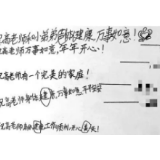 祝高老师和小弟弟身体健康,万事如意!
祝高老师万事如意,年年开心!
祝高老师有一个完美的家庭!
祝高老师身体健康,万事如意
祝高老师身体健康工作顺利,开心